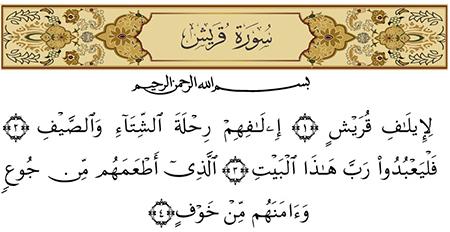 سُورَةُ قُرَيْشٍ
بِسْمِ اللَّهِ الرَّحْمَٰنِ الرَّحِيمِ
لِإِيلَٰفِ قُرَيْشٍ ﴿١﴾ إِۦلَٰفِهِمْ رِحْلَةَ الشِّتَآءِ وَالصَّيْفِ ﴿٢﴾
فَلْيَعْبُدُوا۟ رَبَّ هَٰذَا الْبَيْتِ ﴿٣﴾ الَّذِىٓ أَطْعَمَهُم مِّن جُوعٍ
وَءَامَنَهُم مِّنْ خَوْفٍ ﴿٤﴾